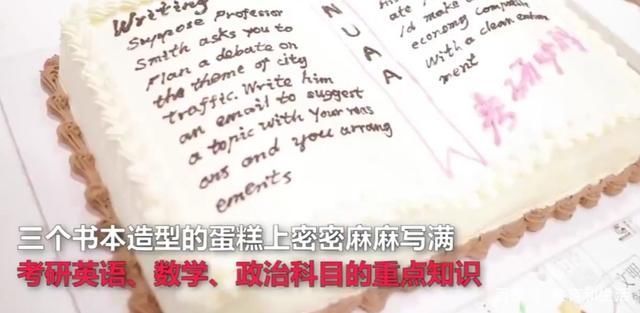 Writing
Suppose Professor
Smith asks you to
Plan a debate on
the theme of city
traffic. Write him
an email to suggest
a topic with Your reas
ons and you arrang
ements
NUAA
ate
I'd make
economy
With a clean environ
ment
三个书本造型的蛋糕上密密麻麻写满
考研英语、数学、政治科目的重点知识